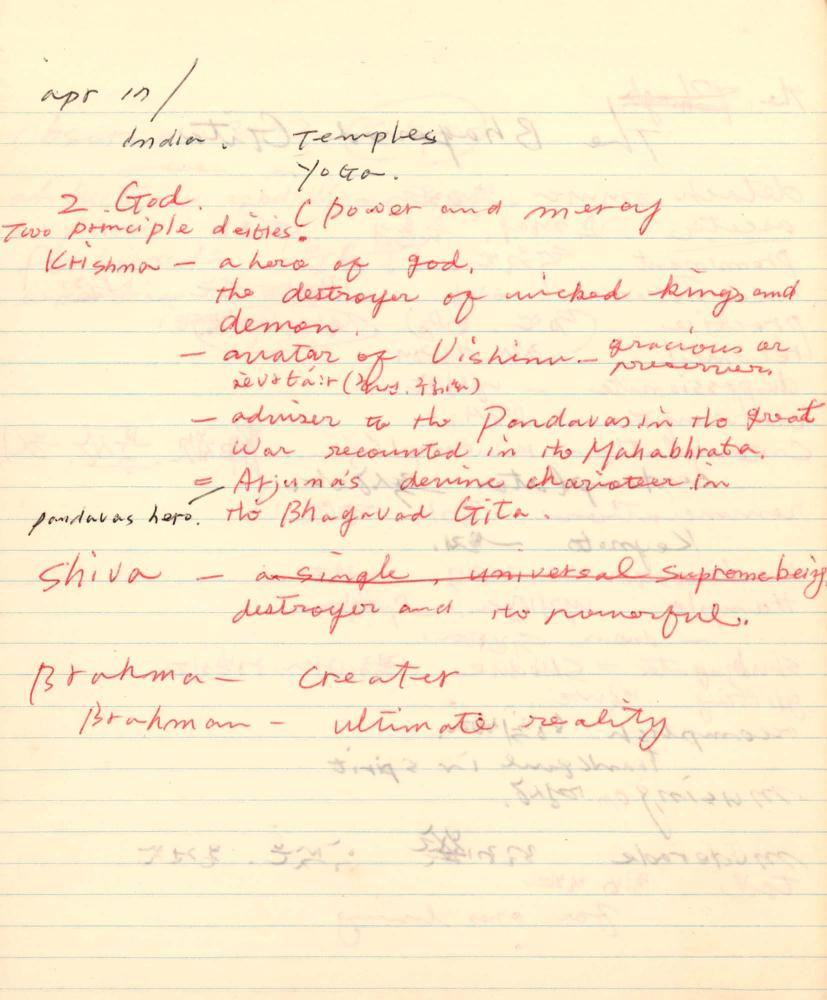 apr 17/
India. Temples
Yoga.
2. God. ( power and mercy
Two principle deities.
Krishna — a hero of god,
the destroyer of wicked kings and
demon.
— avatar of Vishinu — gracious or
preserver.
— adviser to the Pandavas in the great
War recounted in the Mahabhrata.
= Arjuna's devine charioteer in
pandavas hero. the Bhagavad Gita.
Shiva — a single, universal supreme being
destroyer and the powerful.
Brahma — Creater
Brahman — ultimate reality